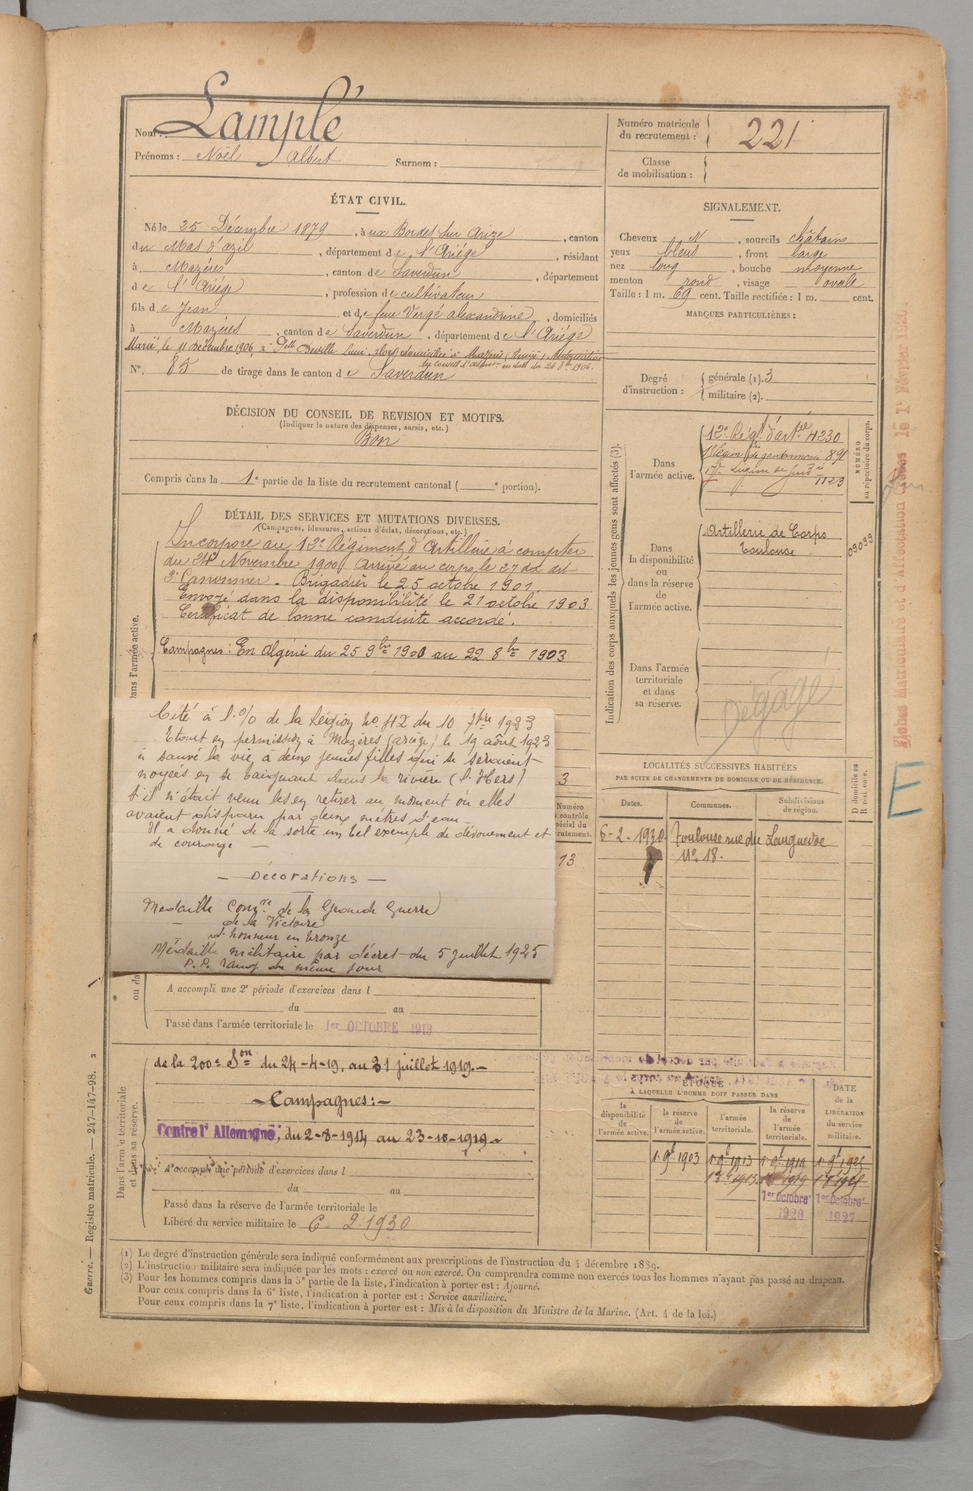 Nom : Lamplé
Prénoms : Noël Albert Surnom :
Numéro matricule du recrutement : 221
Classe de mobilisation :
ÉTAT CIVIL.
Né le 25 Décembre 1879, à aux Bordes sur Arize, canton
du Mas d'azil, département de l'Ariége, résidant
à Mazères, canton de Saverdun, département
de l'Ariége, profession de cultivateur
fils de Jean et de feue Vergé alexandrine, domiciliés
à Mazères, canton de Saverdun, département de l'Ariége
Marié, le 11 Décembre 1906, à Delle Deville
N° 85 de tirage dans le canton de Saverdun
SIGNALEMENT.
Cheveux N, sourcils châtains
yeux bleus, front large
nez long, bouche moyenne
menton rond, visage ovale
Taille : 1 m. 69 cent. Taille rectifiée : 1 m. cent.
MARQUES PARTICULIÈRES :
Degré d'instruction : générale (1). 3
militaire (2).
DÉCISION DU CONSEIL DE REVISION ET MOTIFS.
(Indiquer la nature des dispenses, sursis, etc.)
Bon
Compris dans la 1e partie de la liste du recrutement cantonal ( e portion).
DÉTAIL DES SERVICES ET MUTATIONS DIVERSES.
(Campagnes, blessures, actions d'éclat, décorations, etc.)
Dans l'armée active.
Incorporé au 12e Régiment d'Artillerie à compter
du 24 Novembre 1900, Arrivé au corps le 27 du dit
2e Canonnier. Brigadier le 25 octobre 1901.
Envoyé dans la disponibilité le 21 octobre 1903
Certificat de bonne conduite accordé.
Campagnes : En Algérie du 25 9bre 1900 au 22 8bre 1903
Cité à l'o/o de la Légion no 42 du 10 7bre 1923
Etant en permission à Mazères (ariège) le 19 août 1923
a sauvé la vie, à deux jeunes filles qui se seraient
noyées en se baignant dans la rivière (l'Hers)
s'il n'était venu les en retirer au moment où elles
avaient disparu par deux mètres d'eau.
Il a donné de la sorte un bel exemple de dévouement et
de courage —
— Décorations —
Médaille Comre de la Grande Guerre
— de la Victoire
d'honneur en bronze
Médaille militaire par décret du 5 juillet 1925
P.P. rang du même jour
A accompli une 2e période d'exercices dans l
du au
Passé dans l'armée territoriale le 1er OCTOBRE 1913
Dans l'armée territoriale et dans sa réserve.
de la 200e Son du 24-4-19, au 31 juillet 1919.—
— Campagnes :—
Contre l'Allemagne, du 2-8-1914 au 23-10-1919
A accompli une période d'exercices dans l
du au
Passé dans la réserve de l'armée territoriale le
Libéré du service militaire le 6 2 1930
Indication des corps auxquels les jeunes gens sont affectés (3).
NUMÉRO au répertoire du corps.
Dans l'armée active.
12e Régt d'artie 4230
Légion de gendarmerie 891
17e Légion de Gend. 1123
Dans la disponibilité ou dans la réserve de l'armée active.
Artillerie de Corps
Toulouse
Dans l'armée territoriale et dans sa réserve.
Dégagé
LOCALITÉS SUCCESSIVES HABITÉES
PAR SUITE DE CHANGEMENTS DE DOMICILE OU DE RÉSIDENCE.
Dates. Communes. Subdivisions de région. D domicile ou R résidence.
6-2-1930 Toulouse rue du Languedoc
No 18.
E
ÉPOQUE
À LAQUELLE L'HOMME DOIT PASSER DANS
la disponibilité de l'armée active.
la réserve de l'armée active.
l'armée territoriale.
la réserve de l'armée territoriale.
DATE de la LIBÉRATION du service militaire.
1er Octobre 1920
1er Octobre 1927
Guerre. — Registre matricule. — 247-147-98.
(1) Le degré d'instruction générale sera indiqué conformément aux prescriptions de l'instruction du 4 décembre 1889.
(2) L'instruction militaire sera indiquée par les mots : exercé ou non exercé. On comprendra comme non exercés tous les hommes n'ayant pas passé au drapeau.
(3) Pour les hommes compris dans la 5e partie de la liste, l'indication à porter est : Ajourné.
Pour ceux compris dans la 6e liste, l'indication à porter est : Service auxiliaire.
Pour ceux compris dans la 7e liste, l'indication à porter est : Mis à la disposition du Ministre de la Marine. (Art. 4 de la loi.)